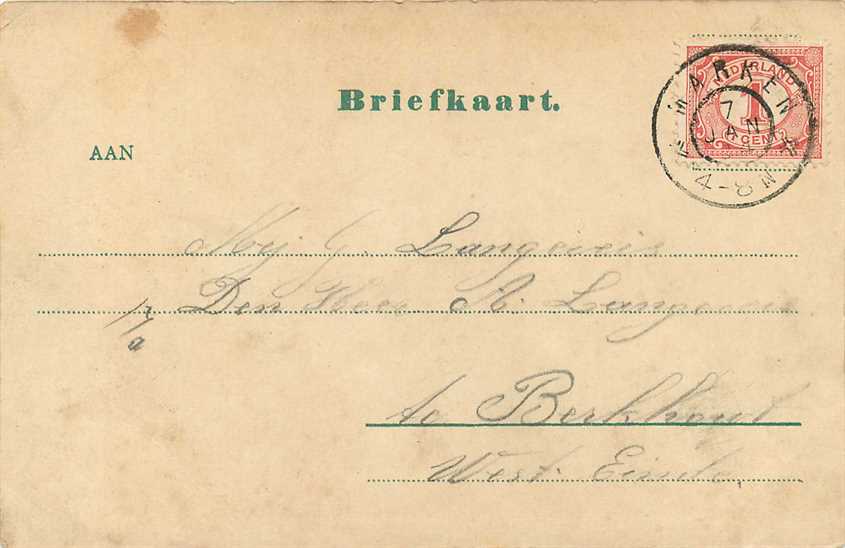 Briefkaart.
NEDERLAND
1
CENT
MARKEN
7 JAN
4-8 N
AAN
Mej G. Langereis
p/a Den Heer A. Langereis
te Berkhout
West Einde,